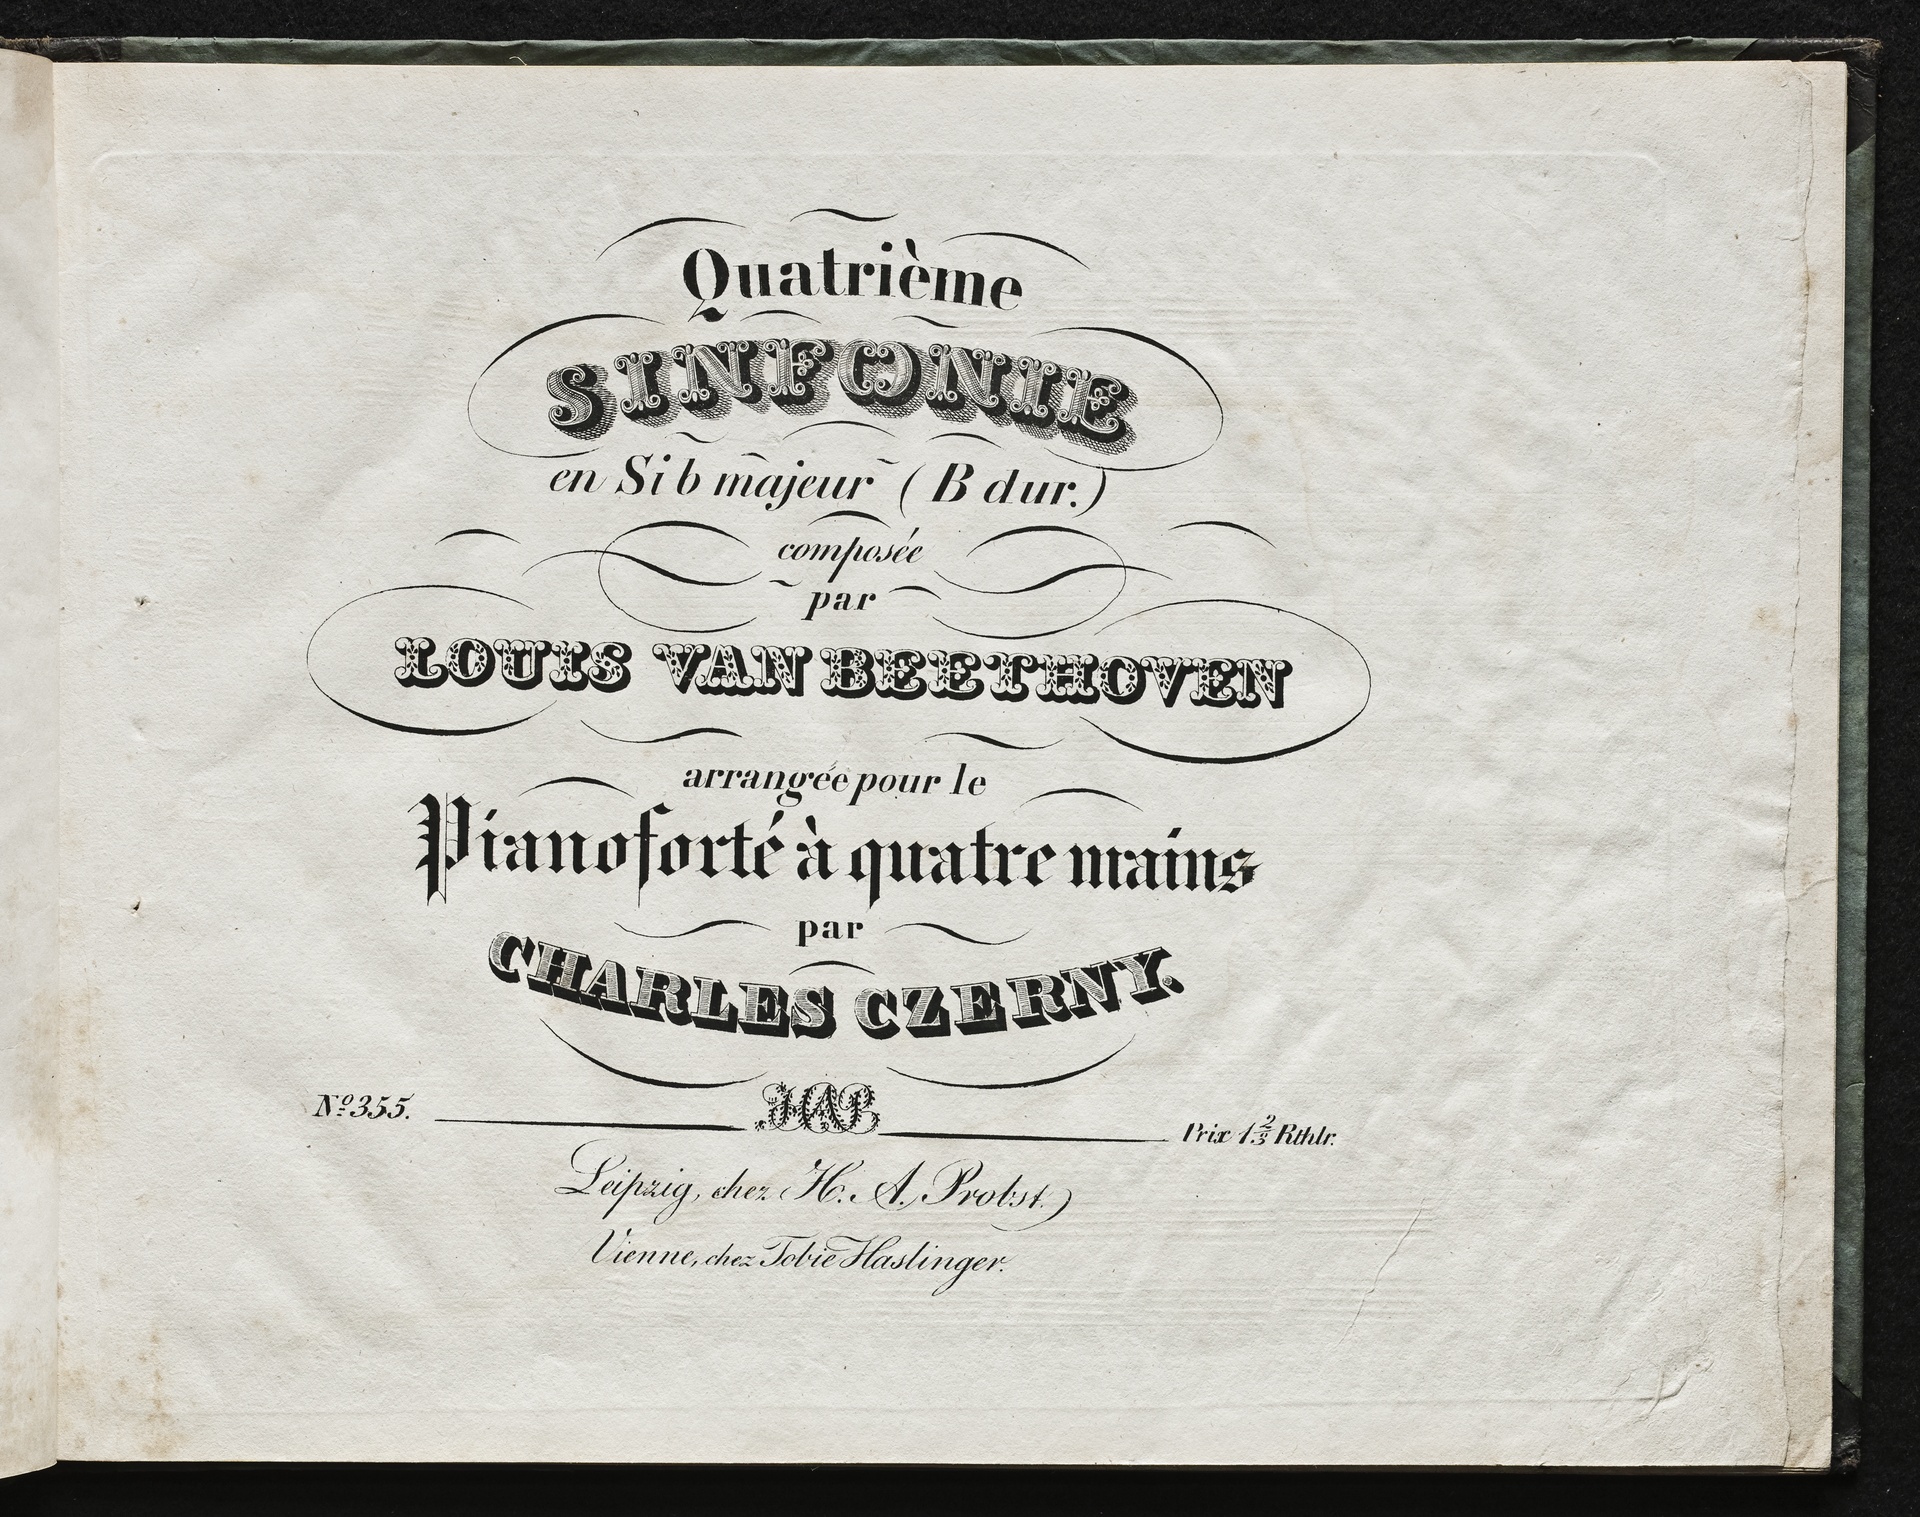 Quatrième
SINFONIE
en Si b majeur (B dur.)
composée
par
LOUIS VAN BEETHOVEN
arrangée pour le
Pianoforté à quatre mains
par
CHARLES CZERNY.
HAP
Nº 355. Prix 1 2/3 Rthlr.
Leipzig, chez H. A. Probst.
Vienne, chez Tobie Haslinger.